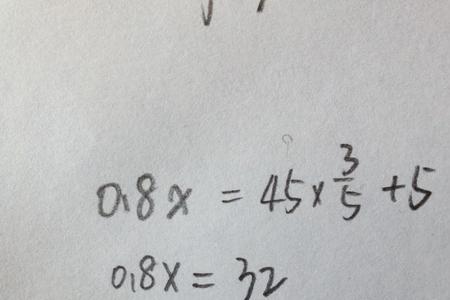 0.8x = 45 × 3/5 + 5
0.8x = 32